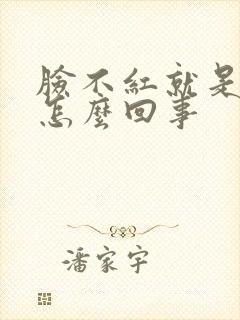 臉不紅就是
怎麼回事
潘家宇